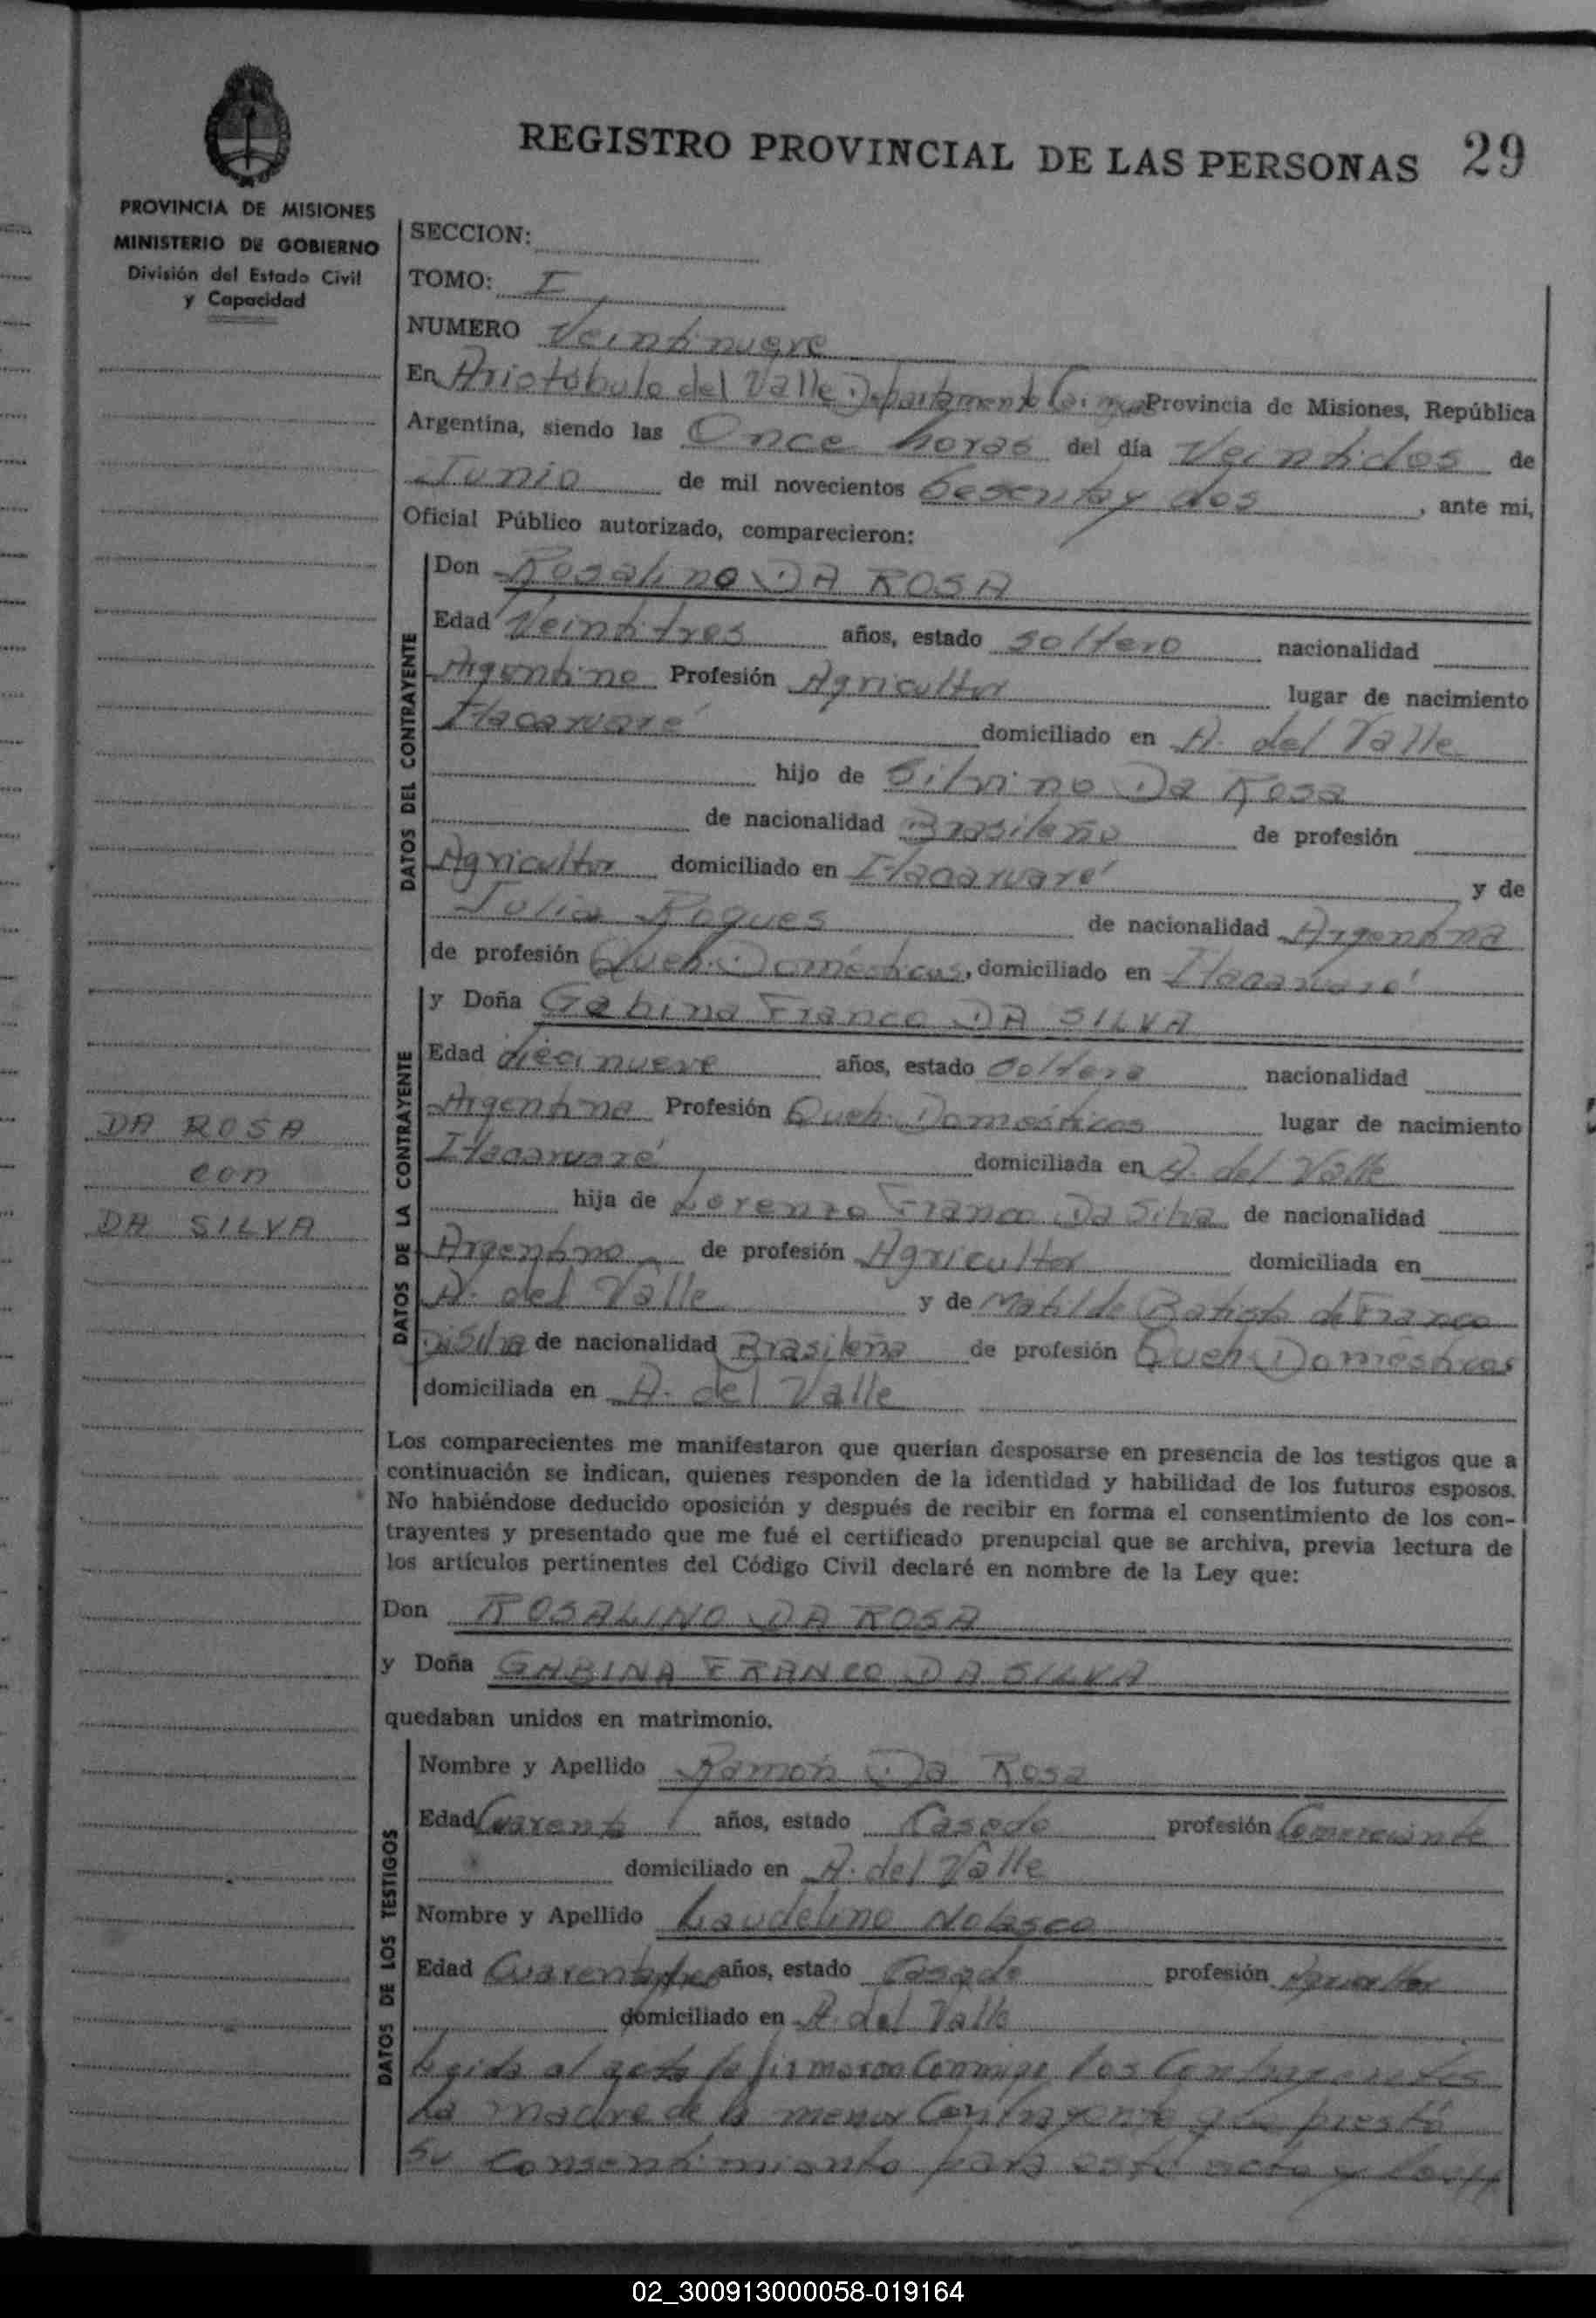 REGISTRO PROVINCIAL DE LAS PERSONAS 29
PROVINCIA DE MISIONES
MINISTERIO DE GOBIERNO
División del Estado Civil
y Capacidad
SECCION:
TOMO: I
NUMERO Veintinueve
En Aristóbulo del Valle Departamento Provincia de Misiones, República
Argentina, siendo las Once horas del día Veintidos de
Junio de mil novecientos Sesenta y dos, ante mi,
Oficial Público autorizado, comparecieron:
DATOS DEL CONTRAYENTE
Don Rosalino DA ROSA
Edad Veintitres años, estado soltero nacionalidad
Argentino Profesión Agricultor lugar de nacimiento
Itacaruaré domiciliado en A. del Valle
hijo de Silvino Da Rosa
de nacionalidad Brasileño de profesión
Agricultor domiciliado en Itacaruaré y de
Julia Rogues de nacionalidad Argentina
de profesión Queh. Domésticos, domiciliado en Itacaruaré
DATOS DE LA CONTRAYENTE
y Doña Gabina Franco DA SILVA
Edad diecinueve años, estado Soltera nacionalidad
Argentina Profesión Queh. Domésticos lugar de nacimiento
Itacaruaré domiciliada en A. del Valle
hija de Lorenzo Franco Da Silva de nacionalidad
Argentino de profesión Agricultor domiciliada en
A. del Valle y de Matilde Batista de Franco
Da Silva de nacionalidad Brasileña de profesión Queh. Domésticos
domiciliada en A. del Valle
DA ROSA
con
DA SILVA
Los comparecientes me manifestaron que querían desposarse en presencia de los testigos que a
continuación se indican, quienes responden de la identidad y habilidad de los futuros esposos.
No habiéndose deducido oposición y después de recibir en forma el consentimiento de los con-
trayentes y presentado que me fué el certificado prenupcial que se archiva, previa lectura de
los artículos pertinentes del Código Civil declaré en nombre de la Ley que:
Don ROSALINO DA ROSA
y Doña GABINA FRANCO DA SILVA
quedaban unidos en matrimonio.
DATOS DE LOS TESTIGOS
Nombre y Apellido Ramón Da Rosa
Edad Cuarenta años, estado Casado profesión Comerciante
domiciliado en A. del Valle
Nombre y Apellido Laudelino Nolasco
Edad años, estado Casado profesión Agricultor
domiciliado en A. del Valle
Leida el acta la firmaron conmigo los Contrayentes
La madre de la menor Contrayente que prestó
su consentimiento para este acto y
02_300913000058-019164